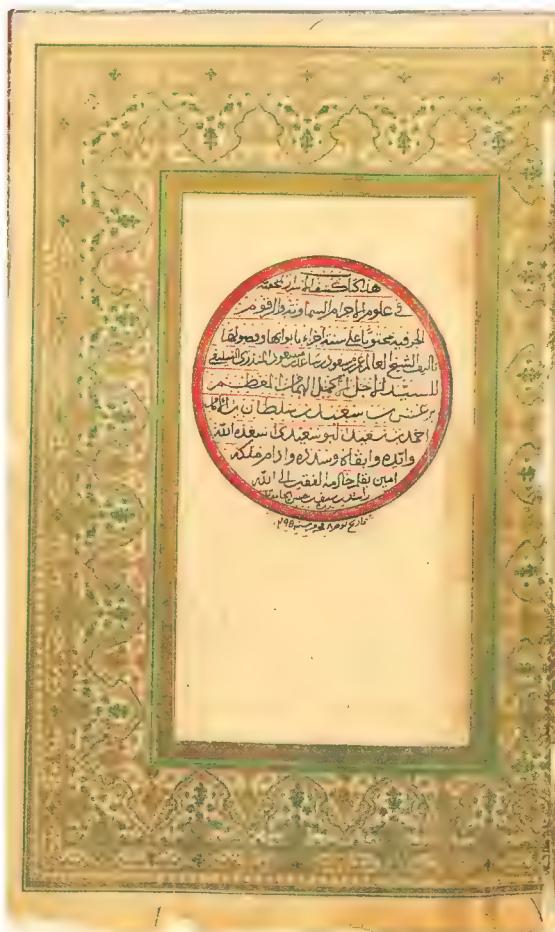 هذا كتاب كشف الأسرار المخفية
في علوم الاجرام السماوية والرقوم
الحرفية محتويًا على ستة أجزاء بأبوابها وفصولها
تأليف الشيخ العالم عمر بن مسعود بن ساعد المنذري السليفي
للسيد الأجل الأكمل الهمام المعظم
برغش بن سعيد بن سلطان بن الامام
احمد بن سعيد البوسعيدي اسعده الله
وأيده وابقاه وسدده وادام ملكه
امين بقلم خادمه الفقير الى الله
راشد بن
تاريخ يوم ٨